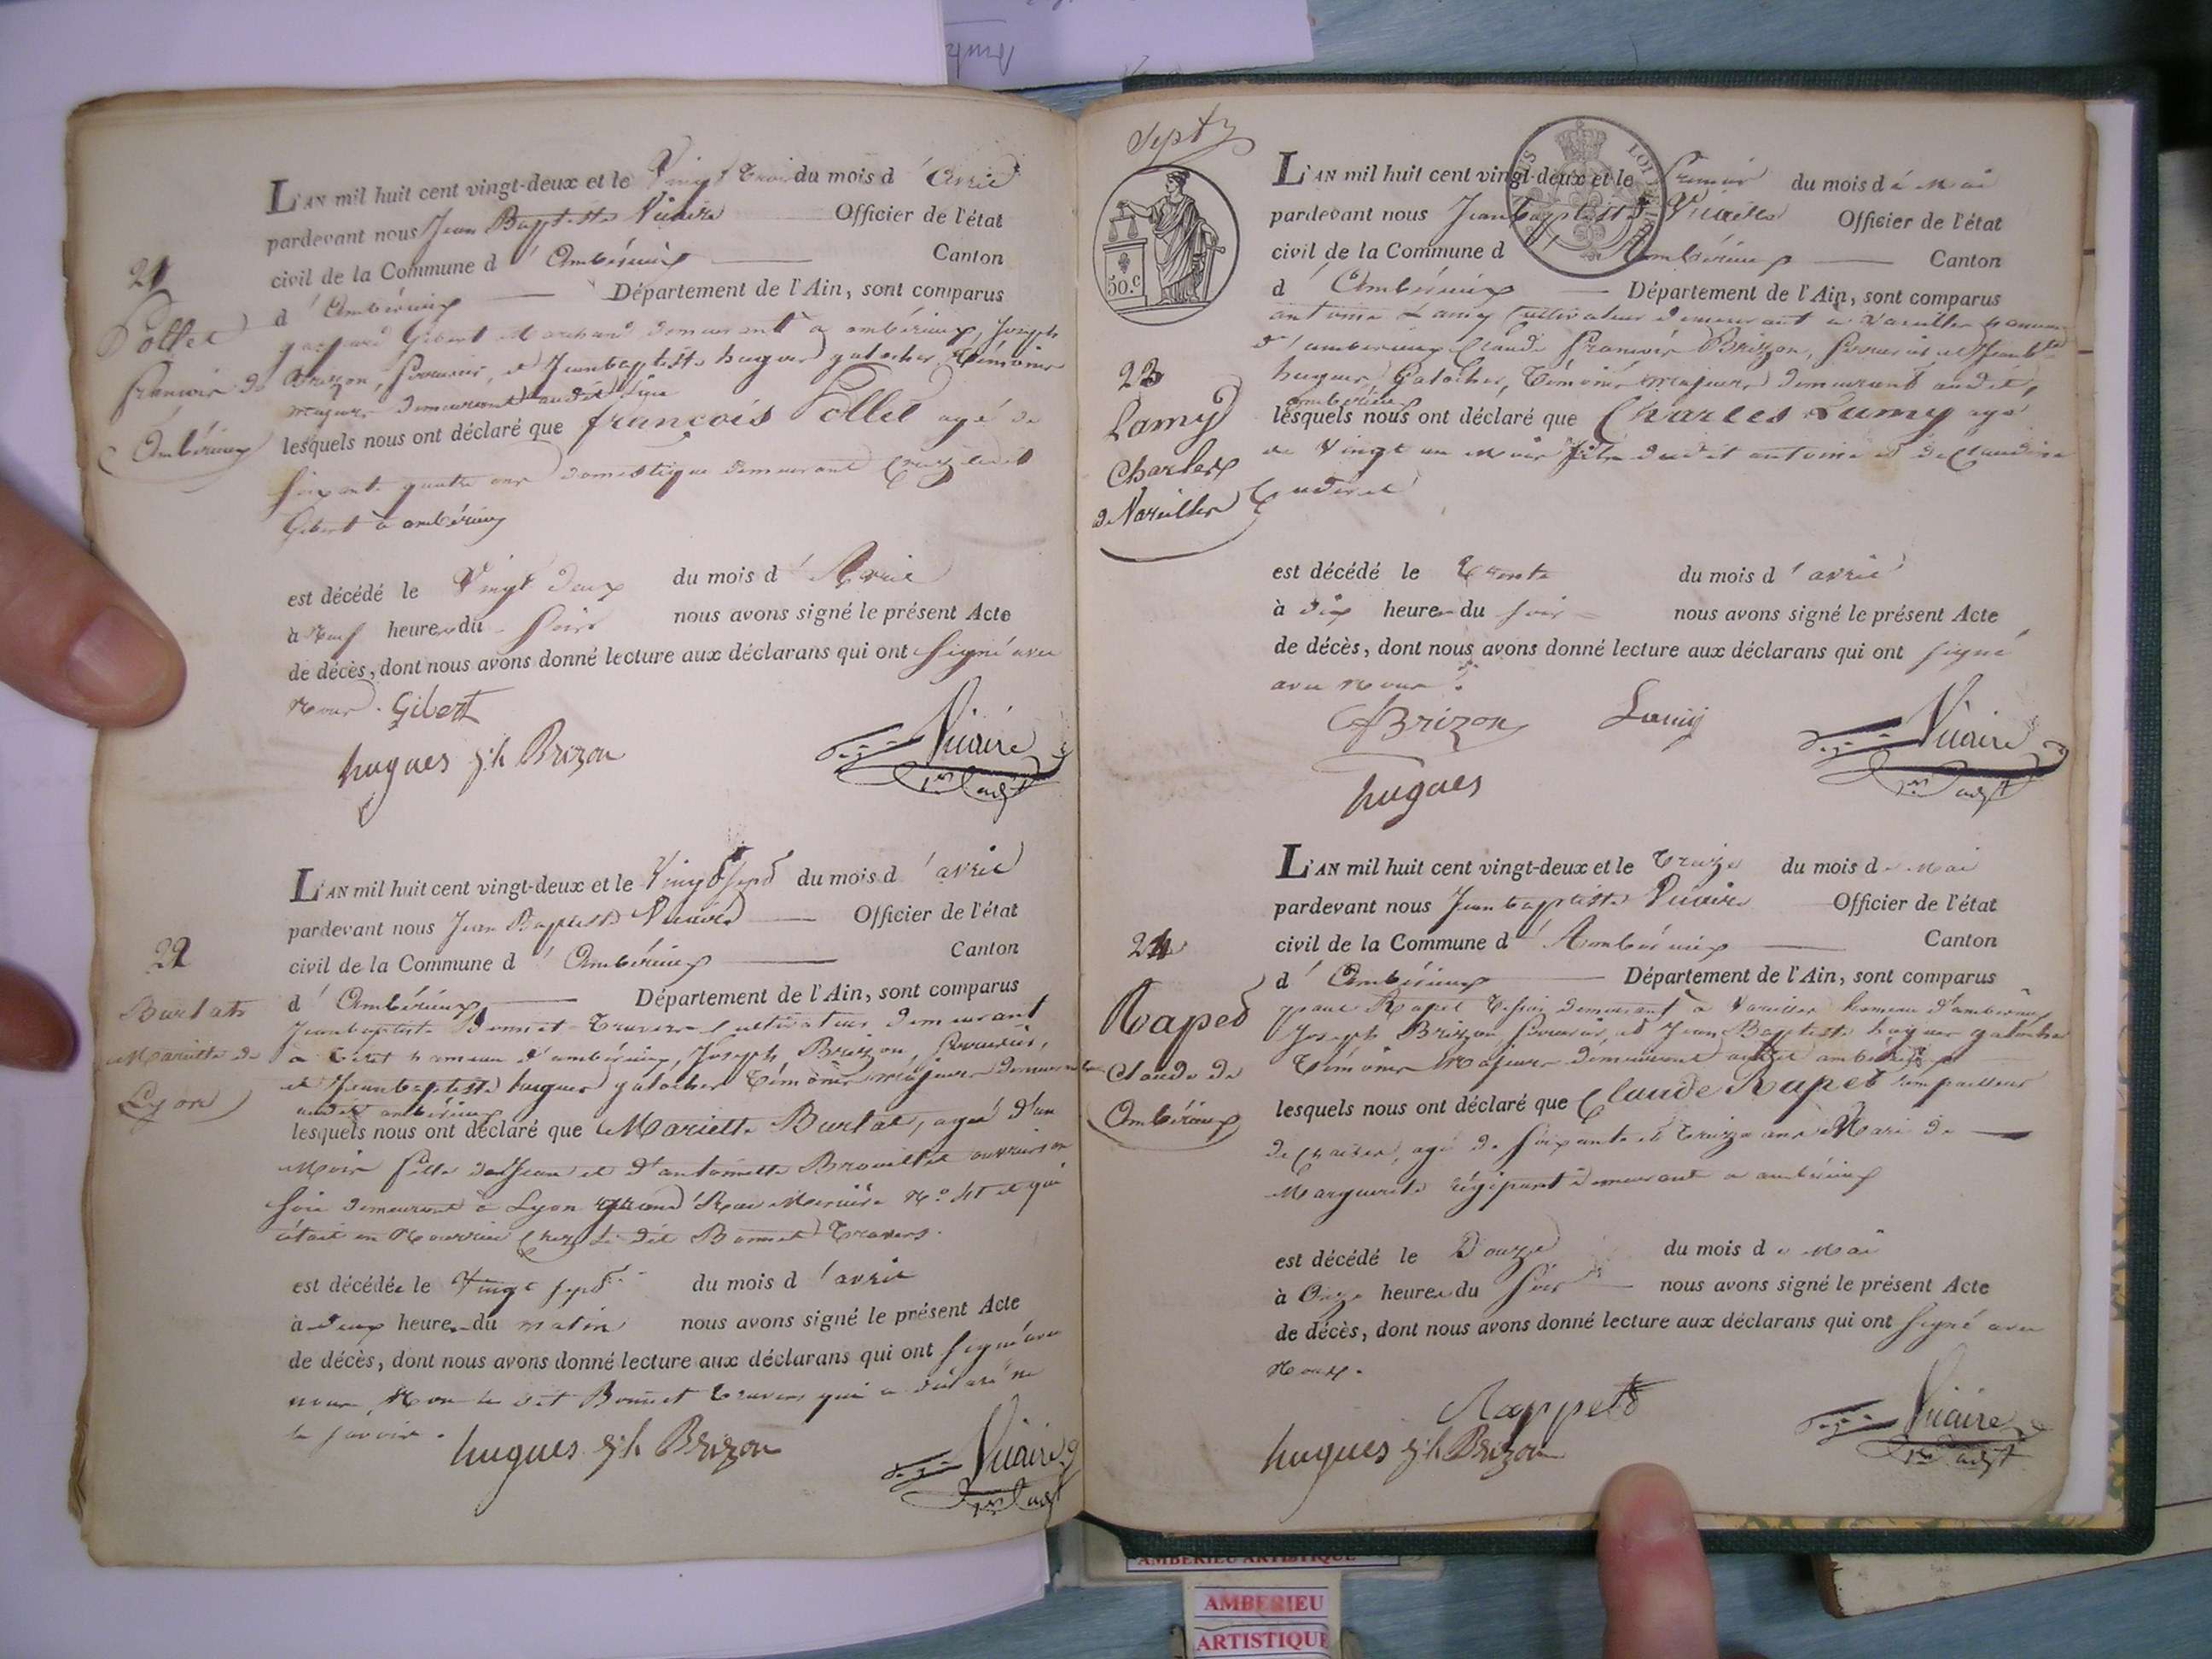 21
Pollet
françois de
Ambérieux
L'AN mil huit cent vingt-deux et le Vingt trois du mois d'Avril
pardevant nous Jean Baptiste Vicaire Officier de l'état
civil de la Commune d'Ambérieux Canton
d'Ambérieux Département de l'Ain, sont comparus
gaspard Gibert Marchand demeurant a ambérieux, Joseph
Brizon, serrurier, et Jeanbaptiste hugues galocher, témoins
majeurs demeurant audit lieu
lesquels nous ont déclaré que françois Pollet agé de
soixante quatre ans domestique demeurant chez ledit
Gibert a ambérieux
est décédé le Vingt deux du mois d'Avril
à Neuf heures du soir nous avons signé le présent Acte
de décès, dont nous avons donné lecture aux déclarans qui ont signé avec
Nous. Gibert
hugues jh Brizon Vicaire
22
Burlat
Mariette de
Lyon
L'AN mil huit cent vingt-deux et le Vingt sept du mois d'avril
pardevant nous Jean Baptiste Vicaire Officier de l'état
civil de la Commune d'Ambérieux Canton
d'Ambérieux Département de l'Ain, sont comparus
Jeanbaptiste Bonnet-Travers Cultivateur demeurant
a hameau d'ambérieux, Joseph Brizon, serrurier,
et Jeanbaptiste hugues galocher témoins majeurs demeurant
audit ambérieux
lesquels nous ont déclaré que Mariette Burlat, agée d'un
Mois fille de Jean et d'antoinette Brouillet ouvriers en
soie demeurant a Lyon grand Rue Mercière N° et qui
était en Nourrice chez le dit Bonnet Travers.
est décédée le Vingt sept du mois d'avril
à deux heures du matin nous avons signé le présent Acte
de décès, dont nous avons donné lecture aux déclarans qui ont signé avec
nous, Non le dit Bonnet Travers qui a déclaré ne
le savoir.
hugues jh Brizon Vicaire
Sept
50.C
LOTERIE
23
Lamy
Charles
de Vareilles
L'AN mil huit cent vingt-deux et le Premier du mois de Mai
pardevant nous Jeanbaptiste Vicaire Officier de l'état
civil de la Commune d'Ambérieux Canton
d'Ambérieux Département de l'Ain, sont comparus
antoine Lamy Cultivateur demeurant a Vareilles hameau
d'ambérieux Claude françois Brizon, serrurier et Jeanbte
hugues, Galocher, témoins majeurs demeurant audit,
ambérieux
lesquels nous ont déclaré que Charles Lamy agé
de Vingt un Mois fils dudit antoine et de Claudine
est décédé le trente du mois d'avril
à dix heures du soir nous avons signé le présent Acte
de décès, dont nous avons donné lecture aux déclarans qui ont signé
avec Nous.
Brizon Lamy Vicaire
hugues
24
Rapet
Claude de
Ambérieux
L'AN mil huit cent vingt-deux et le treize du mois de Mai
pardevant nous Jeanbaptiste Vicaire Officier de l'état
civil de la Commune d'Ambérieux Canton
d'Ambérieux Département de l'Ain, sont comparus
Rapet demeurant a Vareilles hameau d'ambérieux
Joseph Brizon serrurier, et Jean Baptiste hugues galocher
témoins Majeurs demeurant audit ambérieux
lesquels nous ont déclaré que Claude Rapet rempailleur
de chaises, agé de soixante et treize ans Mari de
Marguerite demeurant a ambérieux
est décédé le Douze du mois de Mai
à Onze heures du Soir nous avons signé le présent Acte
de décès, dont nous avons donné lecture aux déclarans qui ont signé avec
Nous.
Rappet
hugues jh Brizon Vicaire
AMBERIEU ARTISTIQUE
AMBERIEU
ARTISTIQUE